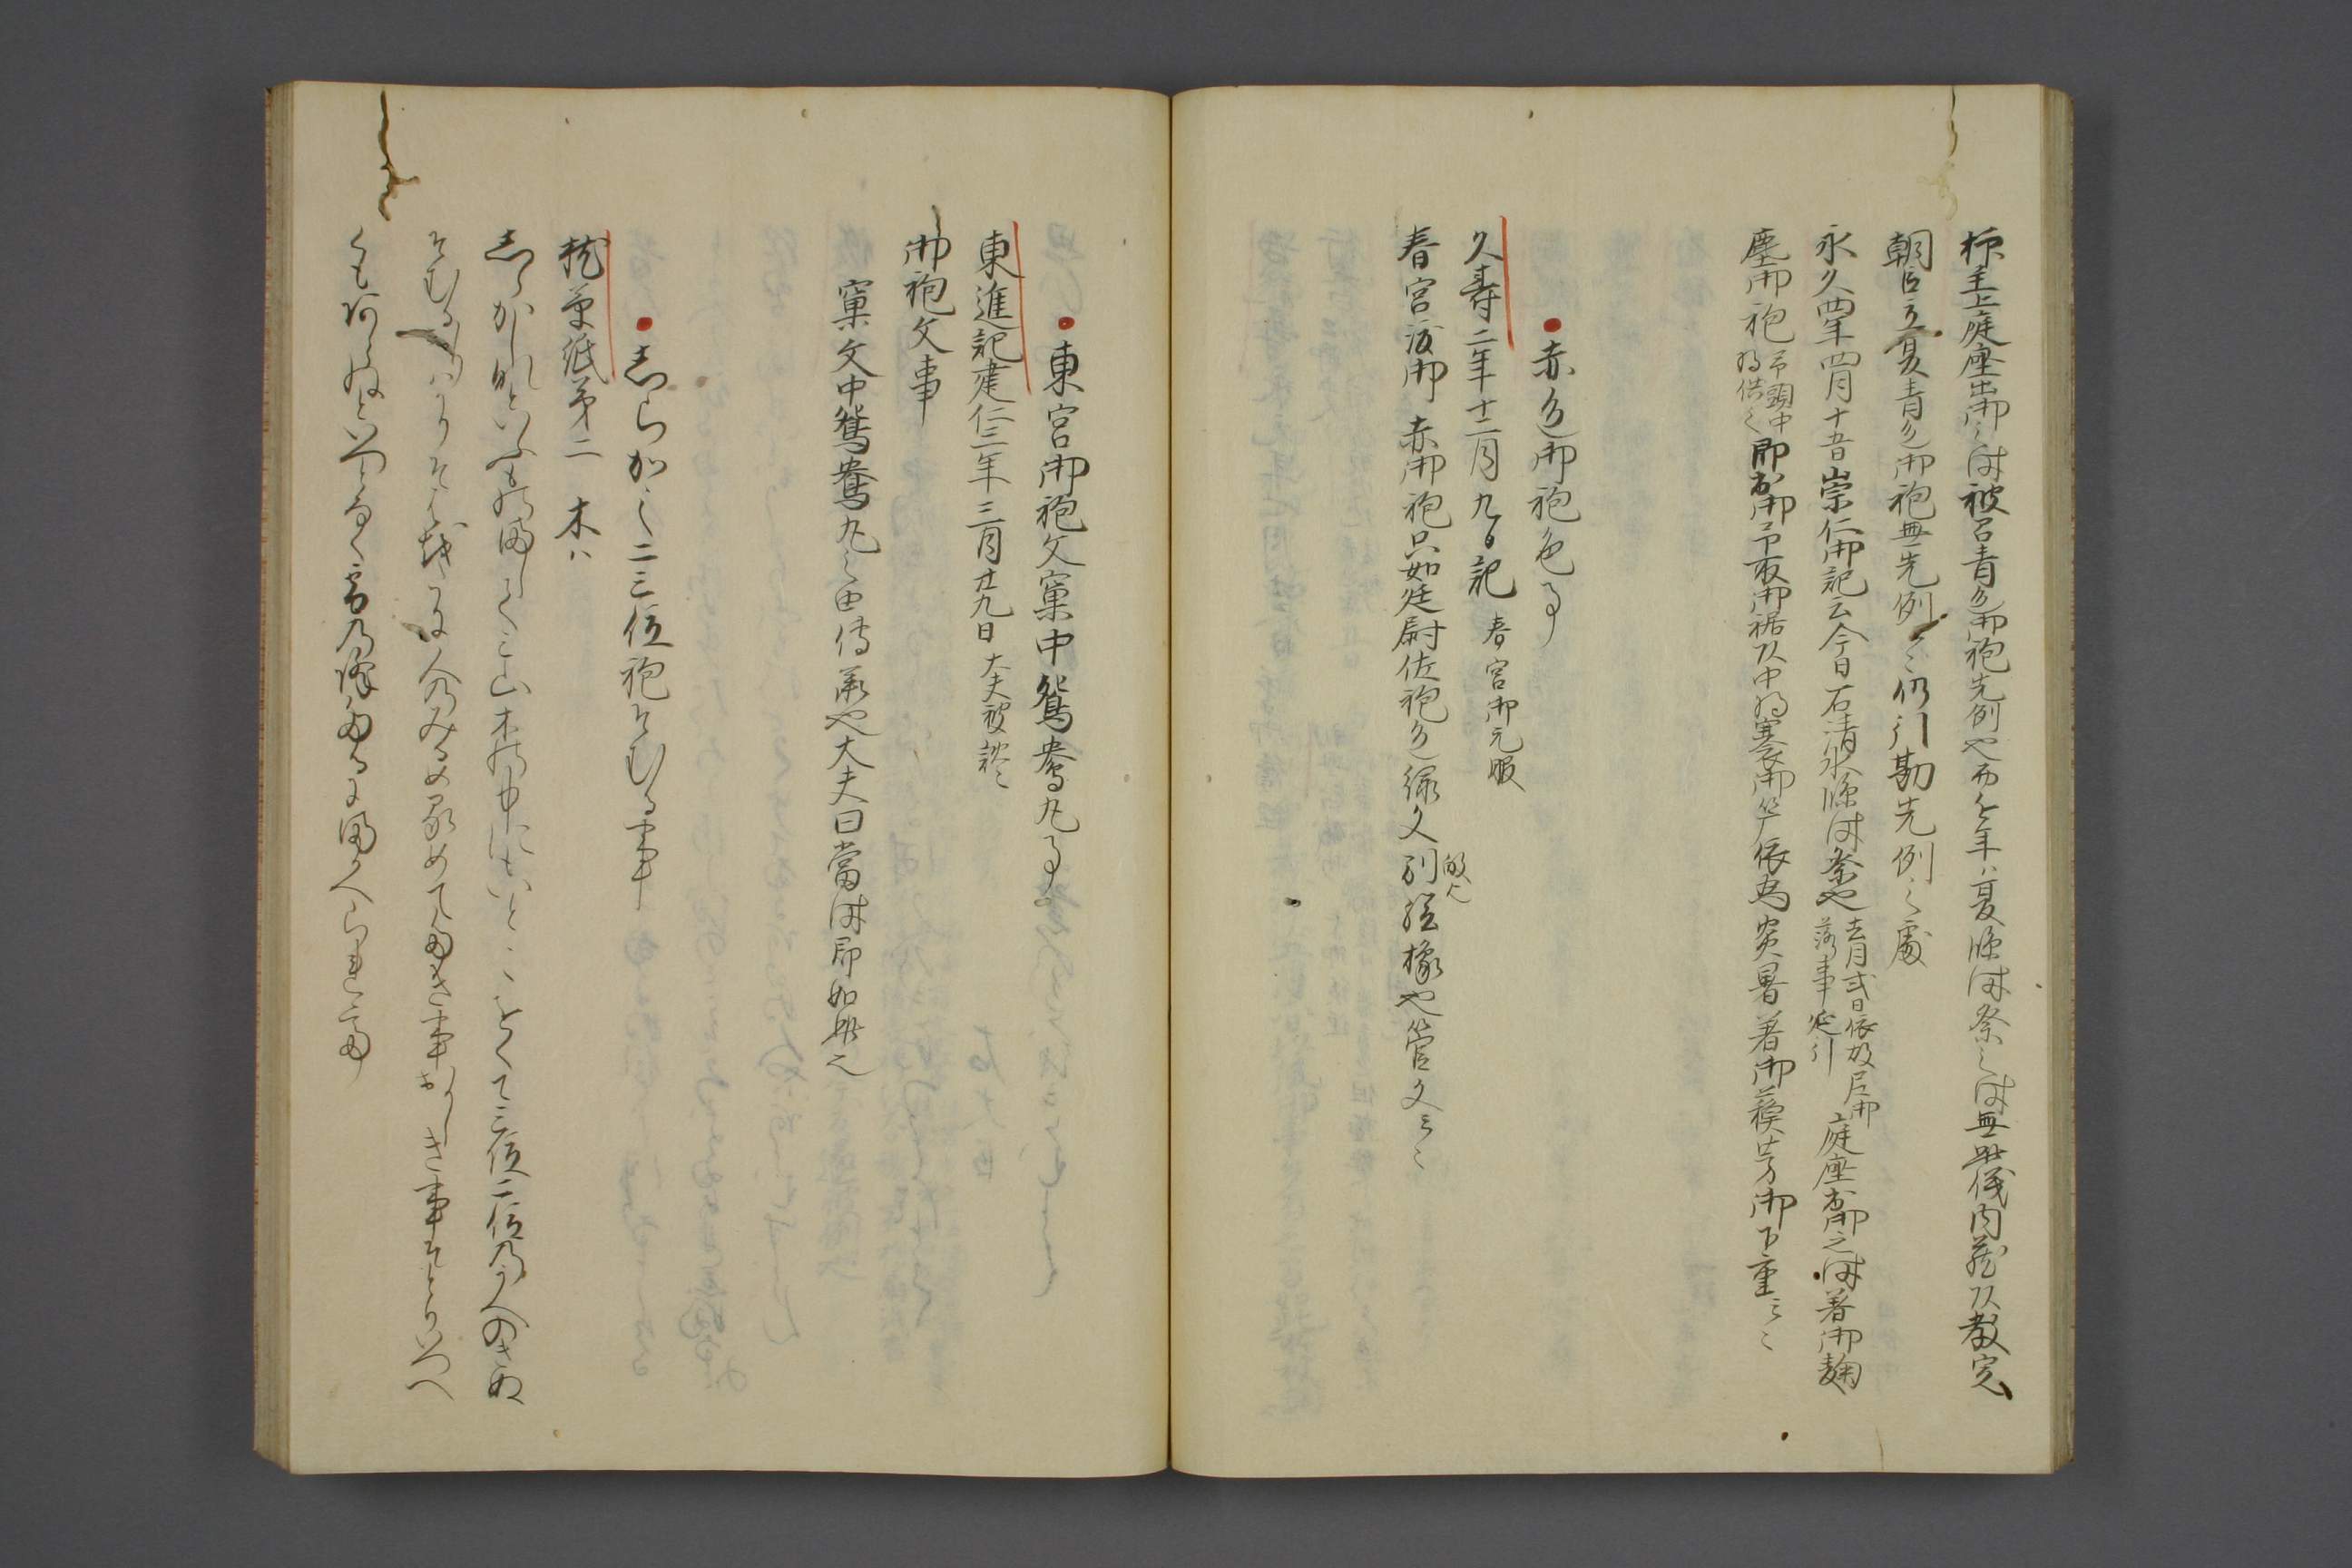 主上庭座出御之時被召青色御袍先例也而今年ハ夏臨時祭之時無此儀内蔵頭教定
朝臣立夏青色御袍無先例云々仍引勘先例之處
永久四年四月十五日崇仁御記云今日石清水臨時祭也去月弐日依故尼御事延引庭座出御之時着御麹
塵御袍頭中将供之即出御予取御裾頭中将褰御簾依為炎暑着御蘇芳御下重云々
赤色御袍色事
久寿二年十二月九日記 春宮御元服
春宮渡御 赤御袍只如廷尉佐袍色縁文別橡也管文云々
東宮御袍文窠中鴛鴦丸事
東進記建仁三年三月廿九日 大夫被談
御袍文事
窠文中鴛鴦丸之由傳承也大夫曰當時即如此之
しらかし二三位袍そむる事
枕草紙第二 木ハ
しらかしなといふもの深山木の中にもいとけとをくて三位二位のうへのきぬ
そむるおりハかりそ葉をたに人のみるめるめてたき事おかしき事にとりいつへ
くもあらねといつとなく雪の降たるに